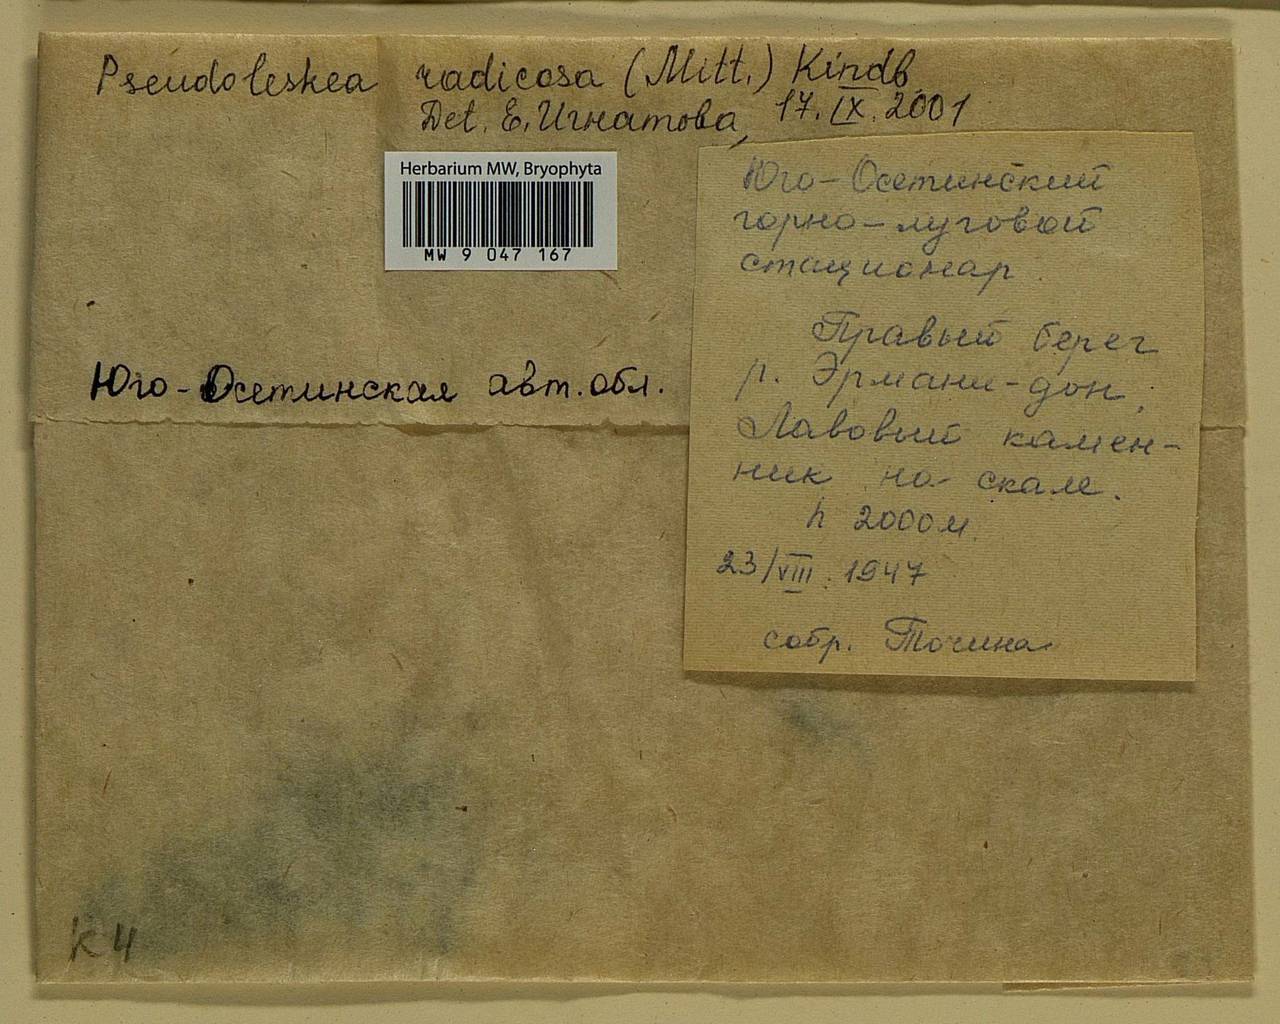 Pseudoleskea radicosa (Mitt.) Kindb.
Det. Е. Игнатова, 17.IX.2001
Herbarium MW, Bryophyta
MW 9 047 167
Юго-Осетинский
горно-луговой
стационар.
Правый берег
р. Эрмани-дон,
Лавовый камен-
ник на скале.
h 2000м.
23/VIII. 1947
собр. Точина
Юго-Осетинская авт. обл.
К 4